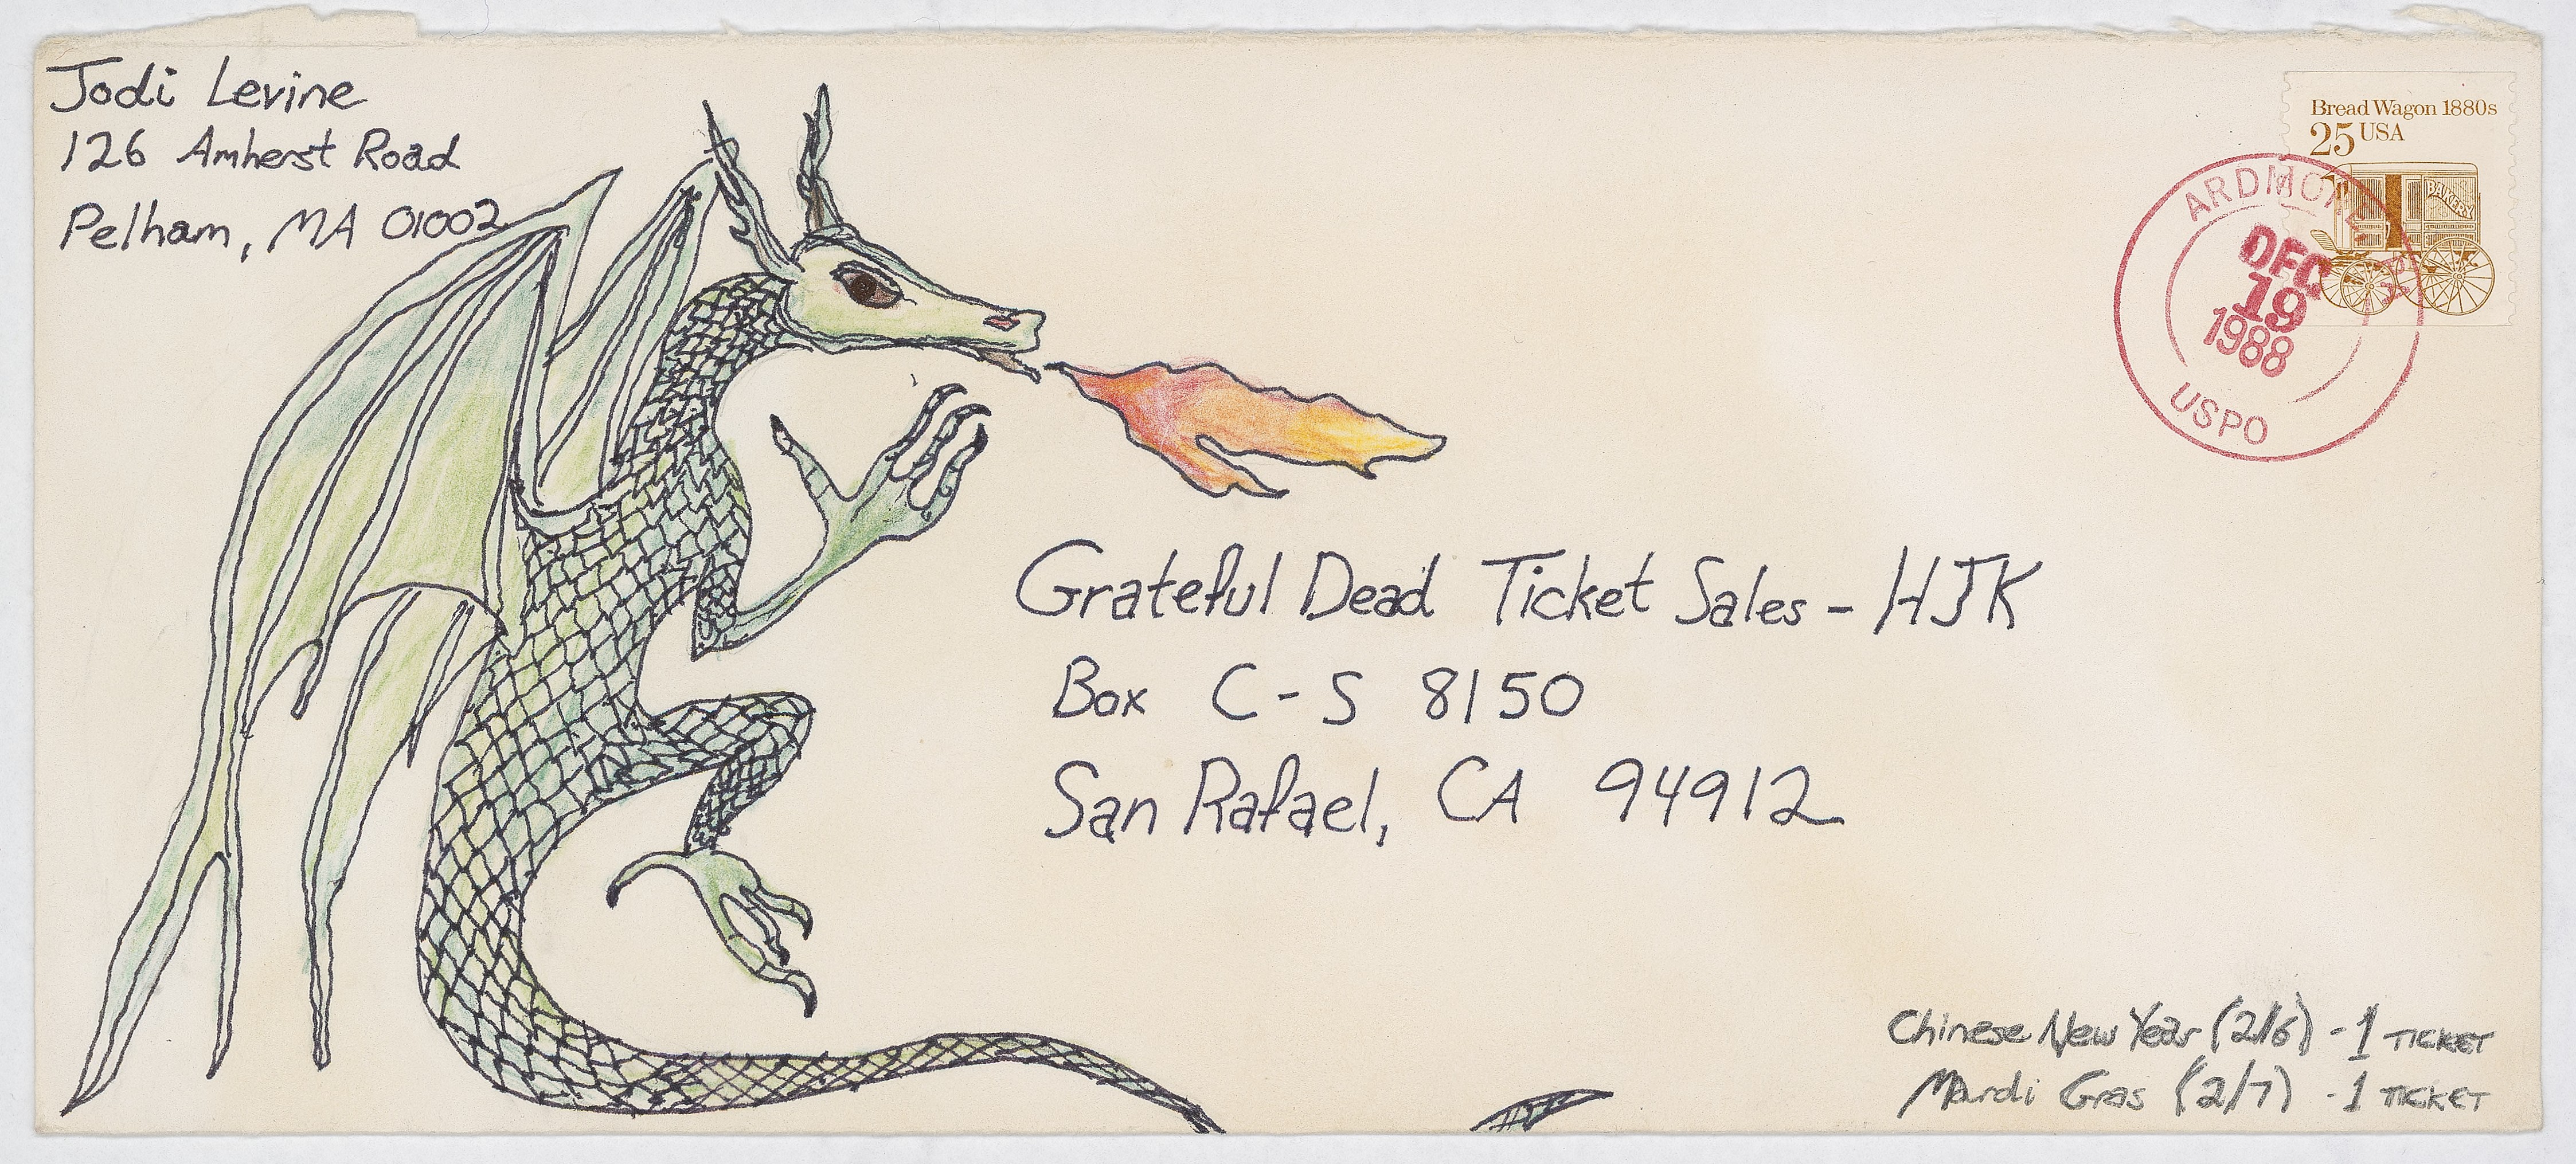 Jodi Levine
126 Amherst Road
Pelham, MA 01002
Bread Wagon 1880s
25 USA
BAKERY
ARDMORE
DEC
19
1988
USPO
Grateful Dead Ticket Sales - HJK
Box C-S 8150
San Rafael, CA 94912
Chinese New Year (2/6) - 1 TICKET
Mardi Gras (2/7) - 1 TICKET